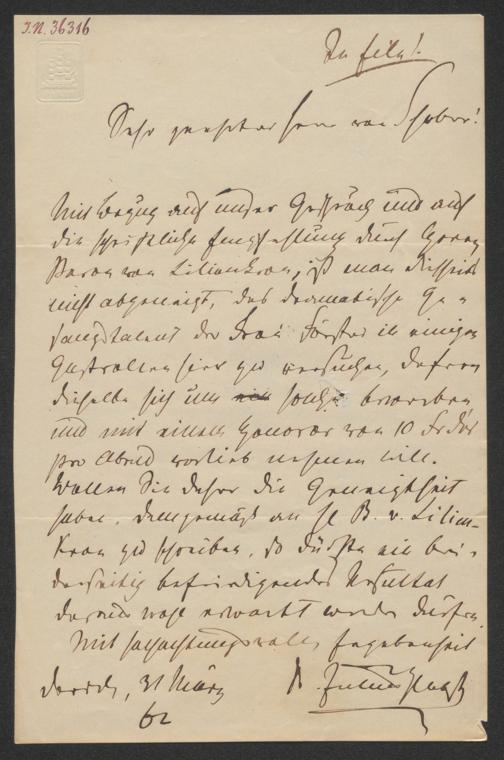 I.N. 36316
In Eile!
Sehr geehrter Herr von Schober!
Mit Bezug auf unser Gespräch und auf
die schriftliche Empfehlung durch Herrn
Baron von Liliencron, ist man diesseits
nicht abgeneigt, das dramatische Ge-
sangstalent der Frau Förster in einigen
Gastrollen hier zu versuchen, dafern
dieselbe sich um solche bewerben
und mit einem Honorar von 10 Frdor
pro Abend vorlieb nehmen will.
Wollen Sie daher die Geneigtheit
haben, demgemäß an H B. v. Lilien-
kron zu schreiben, so dürfte ein bei-
derseitig befriedigendes Resultat
daraus wohl erwartet werden dürfen.
Mit hochachtungsvoller Ergebenheit
Dresd, 31 März Dr. Julius Pabst
62